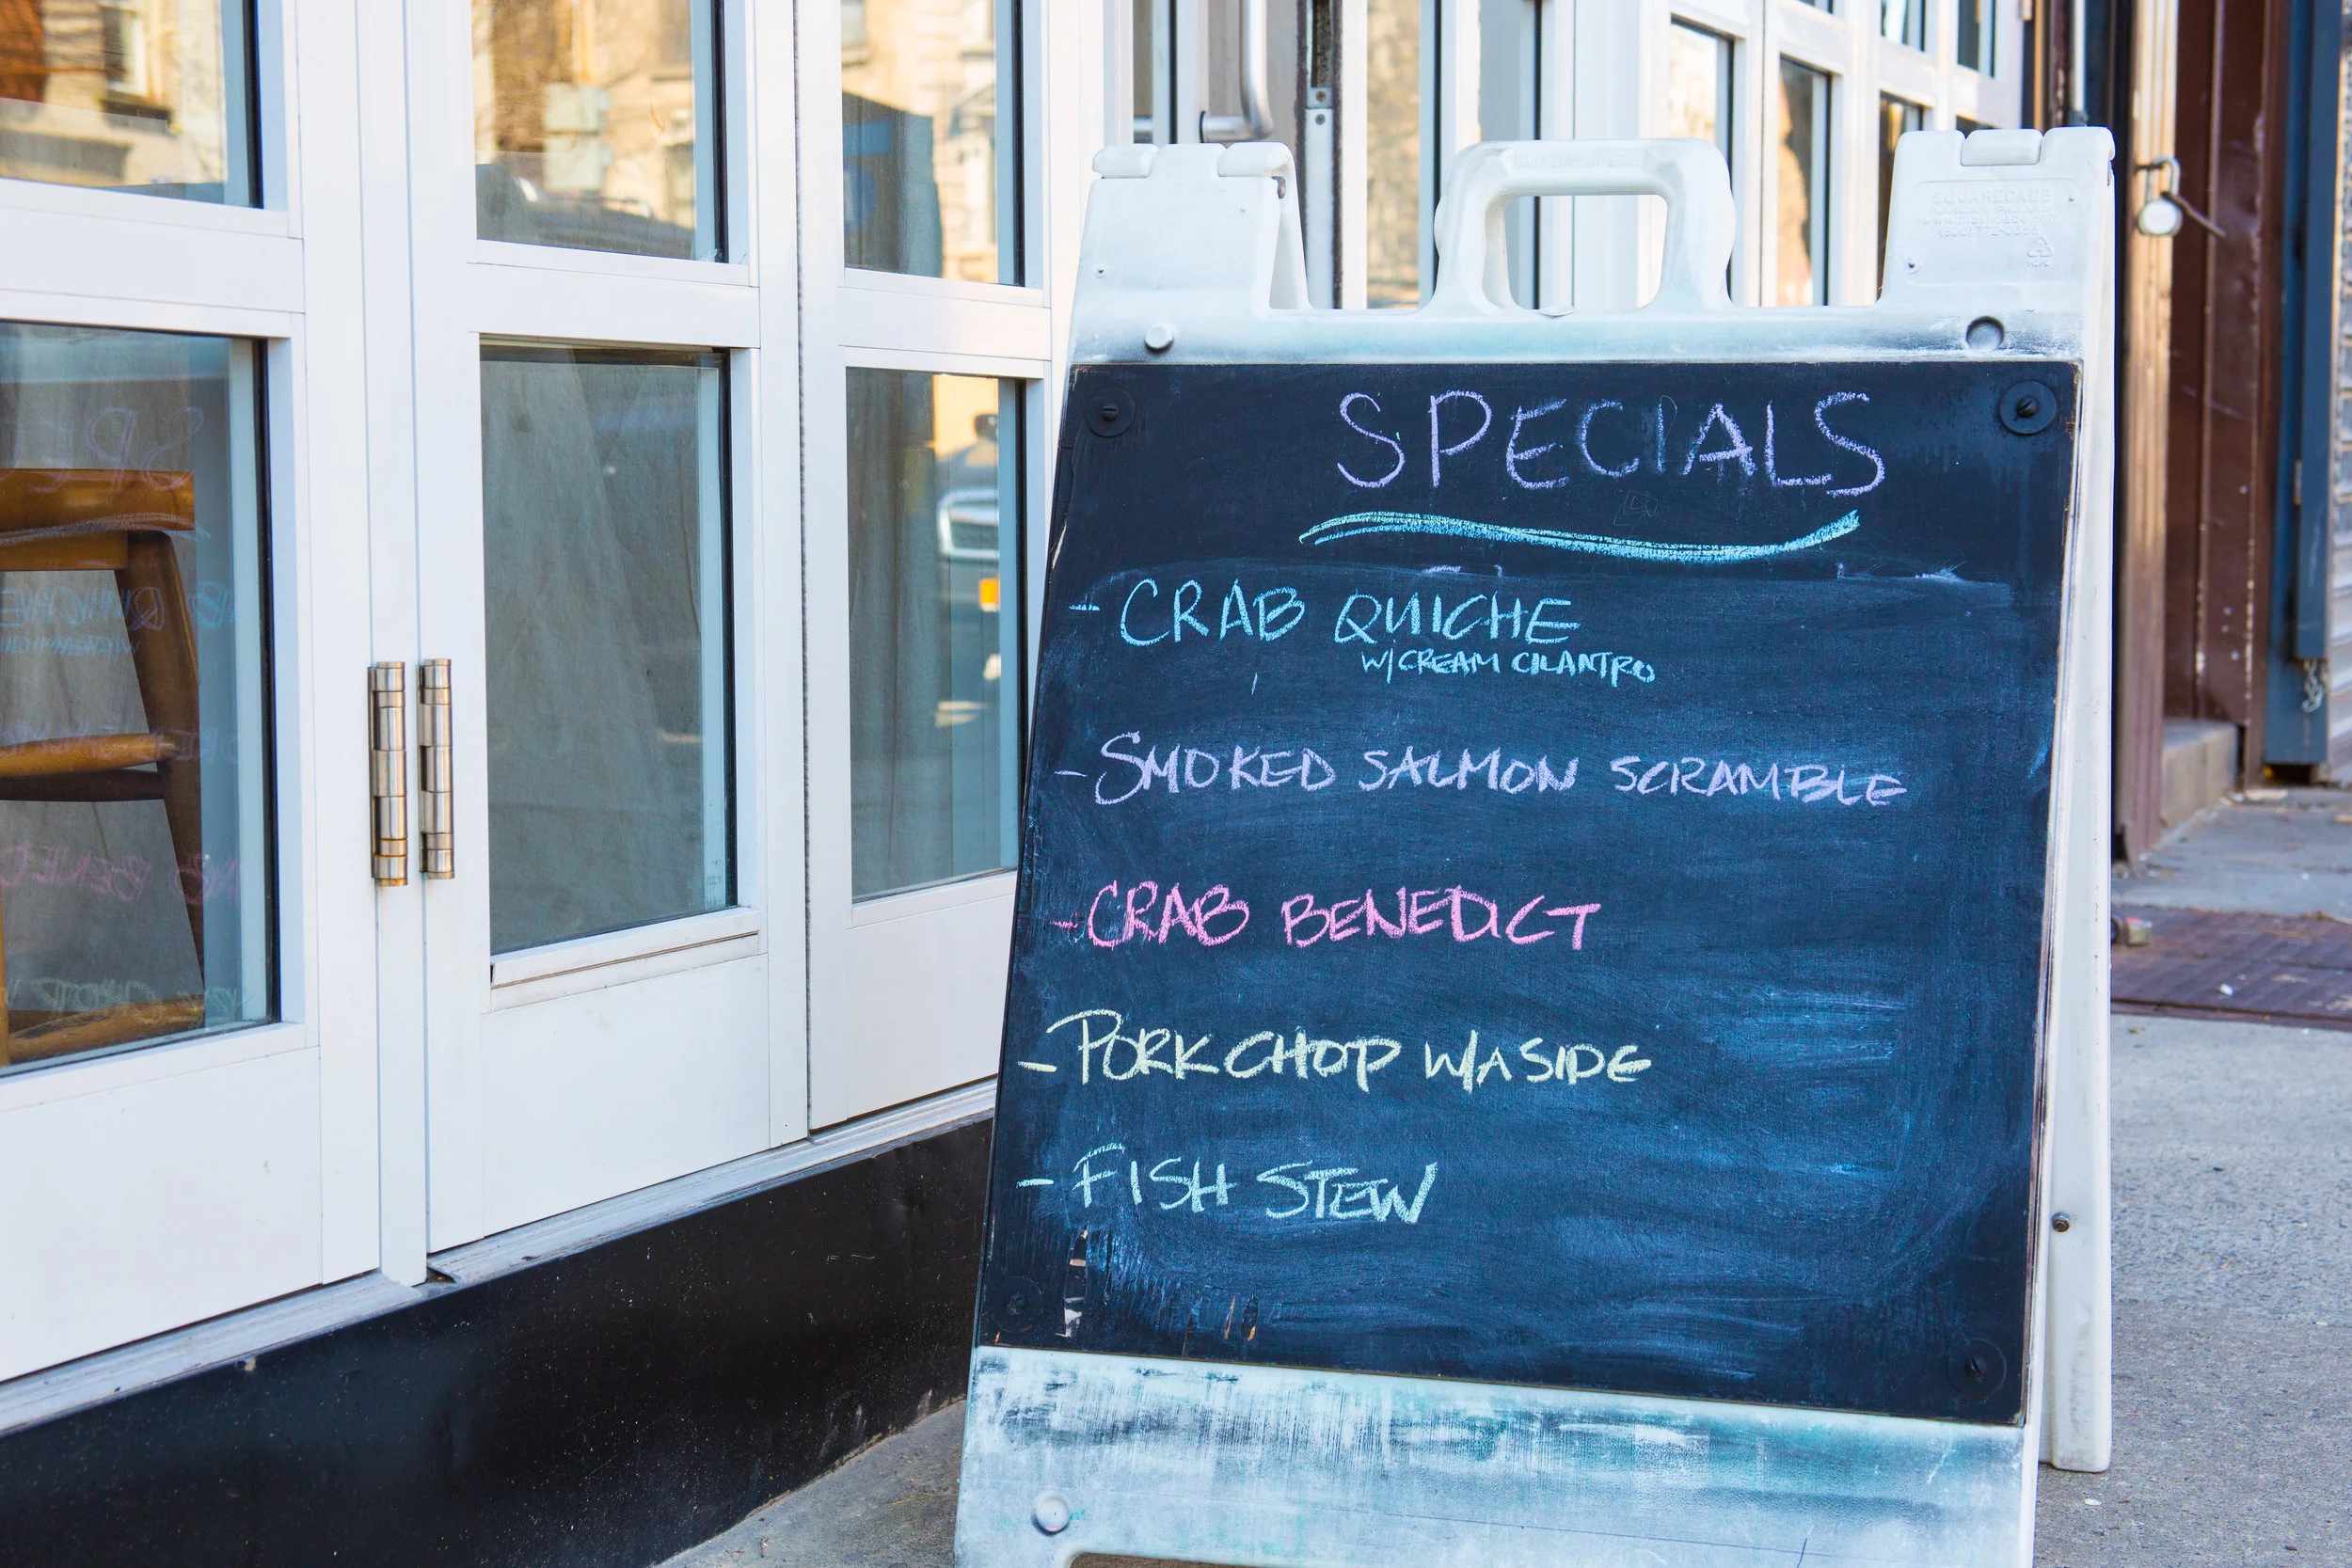 SPECIALS
- CRAB QUICHE
W/CREAM CILANTRO
- SMOKED SALMON SCRAMBLE
- CRAB BENEDICT
- PORK CHOP W/A SIDE
- FISH STEW
SQUARECADE